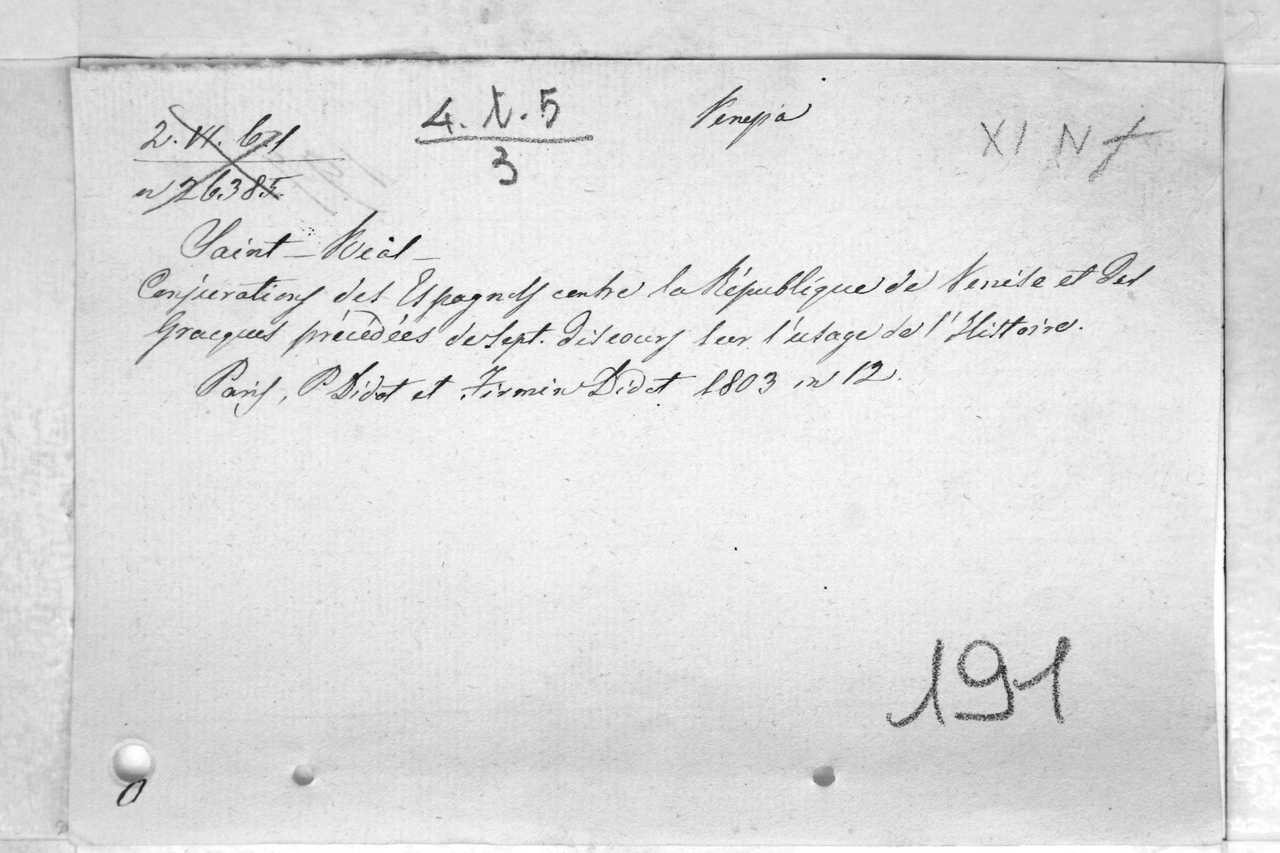 2. VI. 671
n 26385
4. t. 5
3
Venezia
XI N f
Saint-Réal-
Conjurations des Espagnols contre la République de Venise et des
Gracques précédées de sept. discours sur l'usage de l'Histoire.
Paris, P. Didot et Firmin Didot 1803 in 12.
191
0